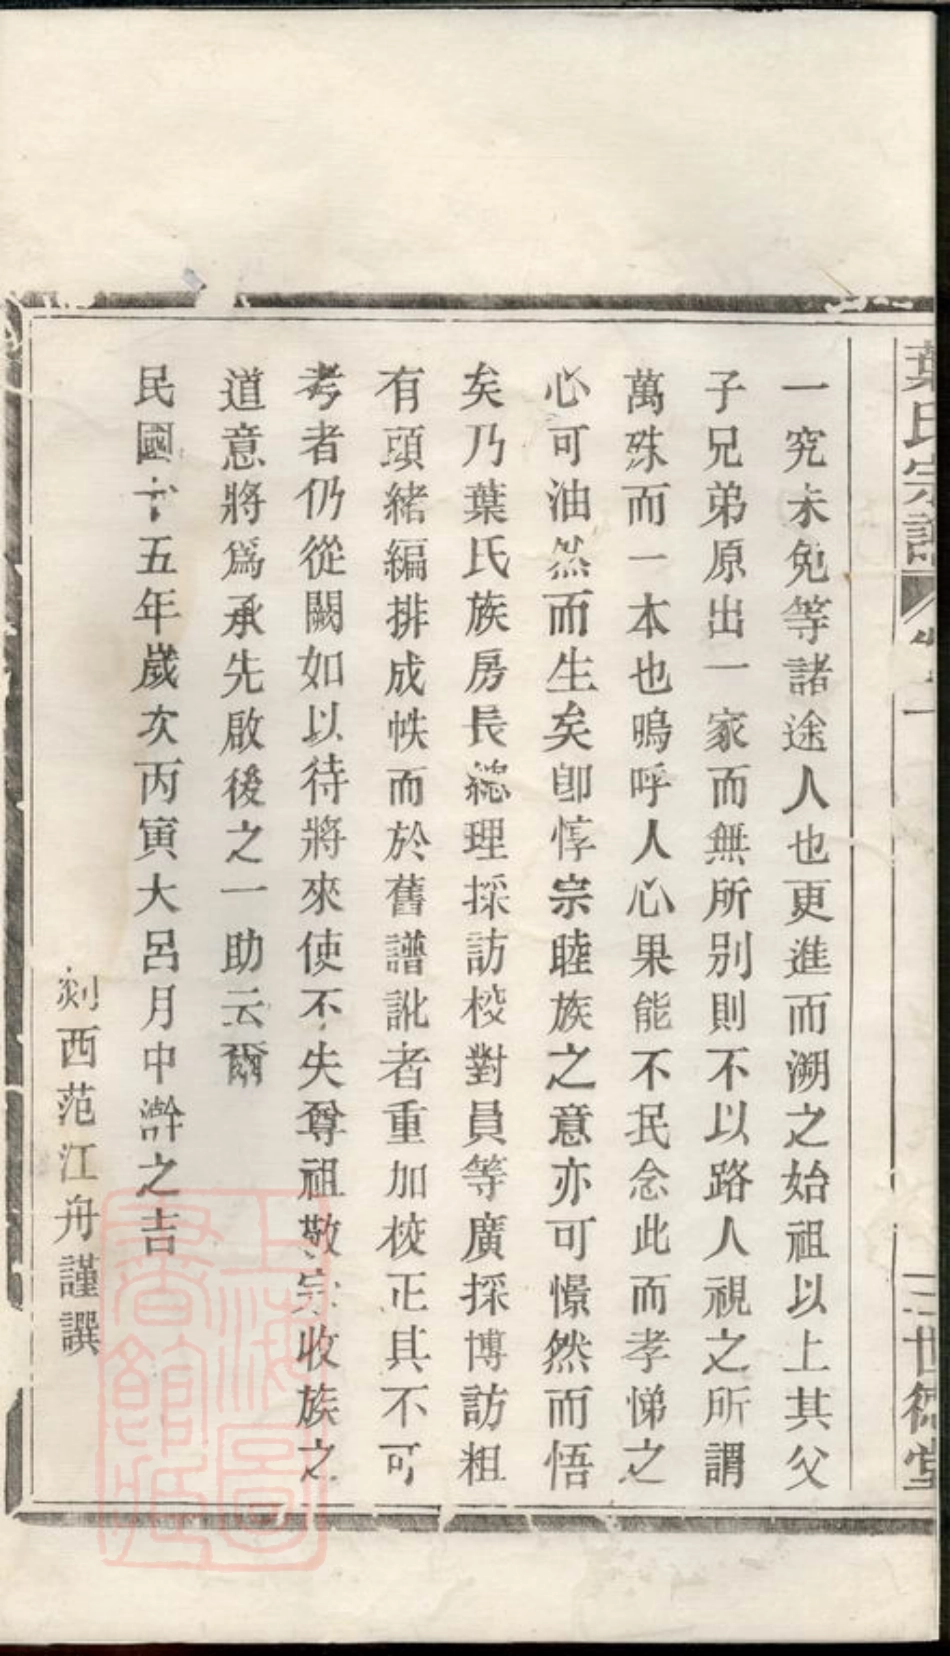 葉氏宗譜 卷之一 三 世德堂
一究未免等諸途人也更進而溯之始祖以上其父
子兄弟原出一家而無所別則不以路人視之所謂
萬殊而一本也嗚呼人心果能不民念此而孝悌之
心可油然而生矣卽惇宗睦族之意亦可憬然而悟
矣乃葉氏族房長總理採訪校對員等廣採博訪粗
有頭緒編排成帙而於舊譜訛者重加校正其不可
考者仍從闕如以待將來使不失尊祖敬宗收族之
道意將爲承先啟後之一助云爾
民國十五年歲次丙寅大呂月中澣之吉
剡西范江舟謹譔
上海圖書館藏